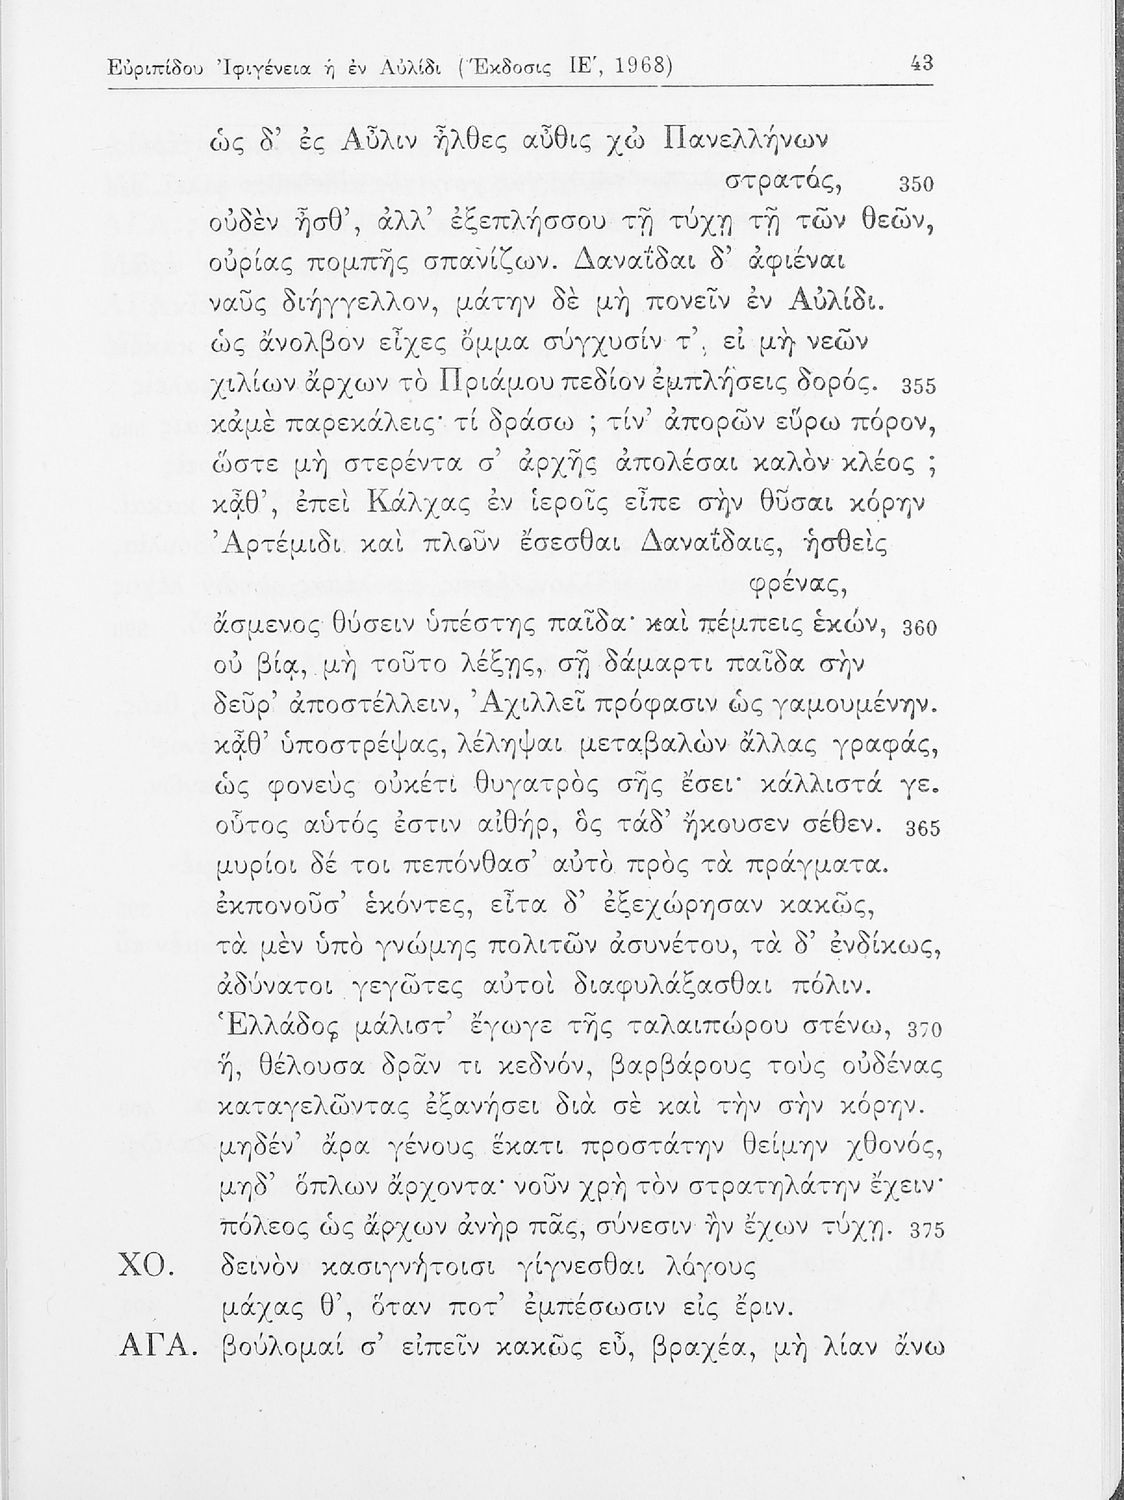 Εὐριπίδου Ἰφιγένεια ἡ ἐν Αὐλίδι (Ἔκδοσις ΙΕ', 1968) 43
ὡς δ' ἐς Αὖλιν ἦλθες αὖθις χὠ Πανελλήνων
στρατός, 350
οὐδὲν ἦσθ', ἀλλ' ἐξεπλήσσου τῇ τύχῃ τῇ τῶν θεῶν,
οὐρίας πομπῆς σπανίζων. Δαναΐδαι δ' ἀφιέναι
ναῦς διήγγελλον, μάτην δὲ μὴ πονεῖν ἐν Αὐλίδι.
ὡς ἄνολβον εἶχες ὄμμα σύγχυσίν τ', εἰ μὴ νεῶν
χιλίων ἄρχων τὸ Πριάμου πεδίον ἐμπλήσεις δορός. 355
κἀμὲ παρεκάλεις· τί δράσω ; τίν' ἀπορῶν εὕρω πόρον,
ὥστε μὴ στερέντα σ' ἀρχῆς ἀπολέσαι καλὸν κλέος ;
κᾆθ', ἐπεὶ Κάλχας ἐν ἱεροῖς εἶπε σὴν θῦσαι κόρην
Ἀρτέμιδι καὶ πλοῦν ἔσεσθαι Δαναΐδαις, ἡσθεὶς
φρένας,
ἄσμενος θύσειν ὑπέστης παῖδα· καὶ πέμπεις ἑκών, 360
οὐ βίᾳ, μὴ τοῦτο λέξῃς, σῇ δάμαρτι παῖδα σὴν
δεῦρ' ἀποστέλλειν, Ἀχιλλεῖ πρόφασιν ὡς γαμουμένην.
κᾆθ' ὑποστρέψας, λέληψαι μεταβαλὼν ἄλλας γραφάς,
ὡς φονεὺς οὐκέτι θυγατρὸς σῆς ἔσει· κάλλιστά γε.
οὗτος αὑτός ἐστιν αἰθήρ, ὃς τάδ' ἤκουσεν σέθεν. 365
μυρίοι δέ τοι πεπόνθασ' αὐτὸ πρὸς τὰ πράγματα.
ἐκπονοῦσ' ἑκόντες, εἶτα δ' ἐξεχώρησαν κακῶς,
τὰ μὲν ὑπὸ γνώμης πολιτῶν ἀσυνέτου, τὰ δ' ἐνδίκως,
ἀδύνατοι γεγῶτες αὐτοὶ διαφυλάξασθαι πόλιν.
Ἑλλάδος μάλιστ' ἔγωγε τῆς ταλαιπώρου στένω, 370
ἥ, θέλουσα δρᾶν τι κεδνόν, βαρβάρους τοὺς οὐδένας
καταγελῶντας ἐξανήσει διὰ σὲ καὶ τὴν σὴν κόρην.
μηδέν' ἄρα γένους ἕκατι προστάτην θείμην χθονός,
μηδ' ὅπλων ἄρχοντα· νοῦν χρὴ τὸν στρατηλάτην ἔχειν·
πόλεος ὡς ἄρχων ἀνὴρ πᾶς, σύνεσιν ἢν ἔχων τύχῃ. 375
ΧΟ. δεινὸν κασιγνήτοισι γίγνεσθαι λόγους
μάχας θ', ὅταν ποτ' ἐμπέσωσιν εἰς ἔριν.
ΑΓΑ. βούλομαί σ' εἰπεῖν κακῶς εὖ, βραχέα, μὴ λίαν ἄνω